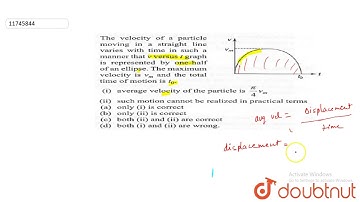 11745844
The velocity of a particle
moving in a straight line
varies with time in such a
manner that v versus t graph
is represented by one-half
of an ellipse. The maximum
velocity is vm and the total
time of motion is t0.
v
vm
t0
t
(i) average velocity of the particle is π/4 vm
(ii) such motion cannot be realized in practical terms
(a) only (i) is correct
(b) only (ii) is correct
(c) both (i) and (ii) are correct
(d) both (i) and (ii) are wrong.
avg vel = Displacement
time
displacement =
Activate Windows
doubtnut